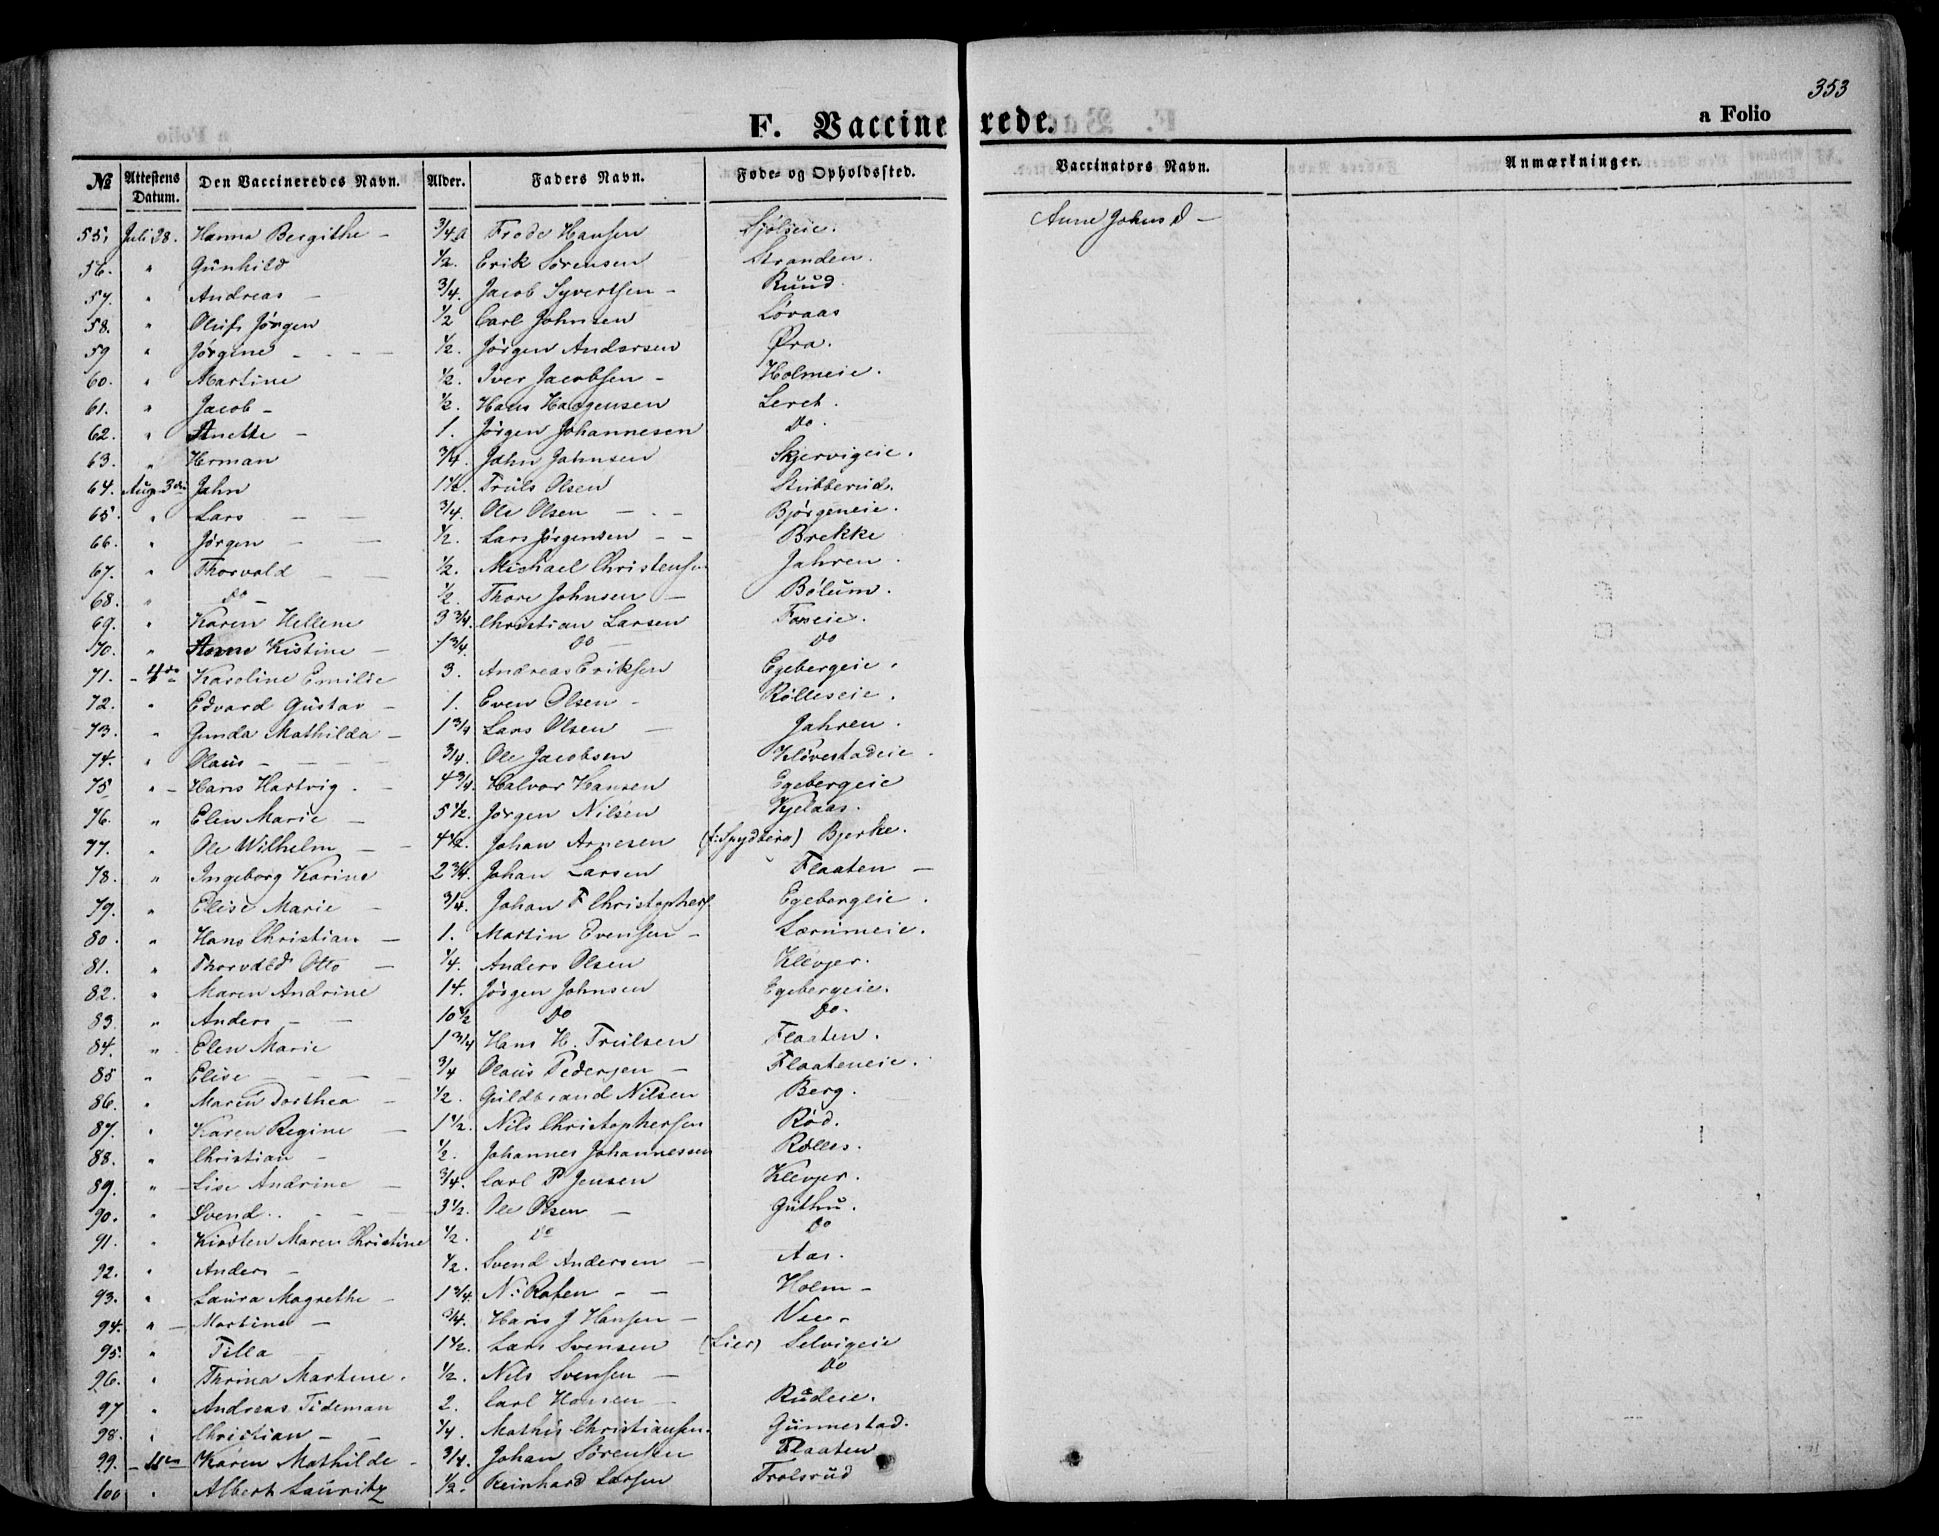 353
F. Vaccinerede.
a Folio
№ Attestens Datum. Den Vaccineredes Navn. Alder. Faders Navn. Føde- og Opholdssted. Vaccinators Navn. Anmærkninger.
55. Juli 28. Hanna Bergithe - 3/4 a Frode Hansen Sjølseie. Anne Johnsd -
56. " Gunhild 1/2. Erik Sørensen Stranden.
57. " Andreas - 3/4. Jacob Syvertsen - Ruud.
58. " Oluf Jørgen 1/2 Carl Johnsen Løvaas
59 " Jørgine - - - 1/2. Jørgen Andersen Øra.
60. " Martine 1/2. Iver Jacobsen - Holmeie.
61. " Jacob - 1/2. Hans Haagensen Leret.
62. " Anette - 1. Jørgen Johannesen Do.
63. " Herman 3/4. John Johnsen Skjervigeie.
64. Aug. 3die John 1 1/2. Truls Olsen Stubberud.
65. " Lars - - 3/4. Ole Olsen - - Bjørgeneie.
66. " Jørgen - - 1/2. Lars Jørgensen - - Brekke
67. " Thorvald - - 1/2. Michael Christensen Jahren.
68. " Do - 1/2. Thore Johnsen - Bølum.
69. " Karen Hellene 3 3/4. Christian Larsen Foseie.
70. " Anne Kistine - 1 3/4. Do - Do
71. - 4de - Karoline Emilie 3. Andreas Eriksen Egebergeie.
72. " Edvard Gustav - 1. Even Olsen - Rølleseie.
73. " Gunda Mathilda - 1 3/4 Lars Olsen - Jahren.
74. " Olaus - - - - 3/4. Ole Jacobsen Kløvestadeie.
75 " - Hans Hartvig. - 4 3/4. Halvor Hansen Egebergeie
76. " Elen Marie - 5 1/2. Jørgen Nilsen Kjelaas.
77. " Ole Wilhelm - - 4 1/2. Johan Arnesen (f: Spydberg) Bjerke.
78. " Ingeborg Karine 2 3/4. Johan Larsen Flaaten -
79. " Elise Marie - 3/4. Johan F Christophers Egebergeie.
80. " Hans Christian - 1. Martin Evensen - Lærumeie.
81. " Thorvald Otto - 1/4. Anders Olsen Klevjer.
82. " Maren Andrine 14. Jørgen Johnsen Egebergeie.
83. " Anders - - 10 1/2 Do Do.
84. " Elen Marie 1 3/4 Hans H. Trulsen Flaaten.
85 " Elise - - - - 3/4 Olaus Pedersen - Flaateneie.
86. " Maren Dorthea - 1/2. Guldbrand Nilsen Berg.
87. " Karen Regine - 1 1/2. Nils Christophersen Rød.
88. " Christian - 1/2. Johannes Johannessen Rølles.
89. " - Lise Andrine - 3/4. Carl P Jensen Klevjer.
90. " Svend. - - - 3 1/2. Ole Olsen - Guthu.
91. " Kirsten Maren Christine 1/2. Do Do
92. " Anders - 1/2. Svend Andersen - Aas.
93. " Laura Magrethe - 1 3/4. N: Rosen - - Holm -
94. " - Martine - 3/4. Hans J Hansen - Nee -
95. " Tilla - 1 1/2. Lars Svensen (Lier) Selvigeie
96. " Thrina Martine. 1/2. Nils Svensen - Do
97 " Andreas Tideman 2. Carl Hansen - Rudeie.
98. " Christian - - 1/4. Mathis Christiansen. Gunnestad.
99. - 11te - Karen Mathilde - 3/4. Johan Sørensen Flaaten
100 " Albert Lauritz 1/2. Reinhard Larsen Trolsrud